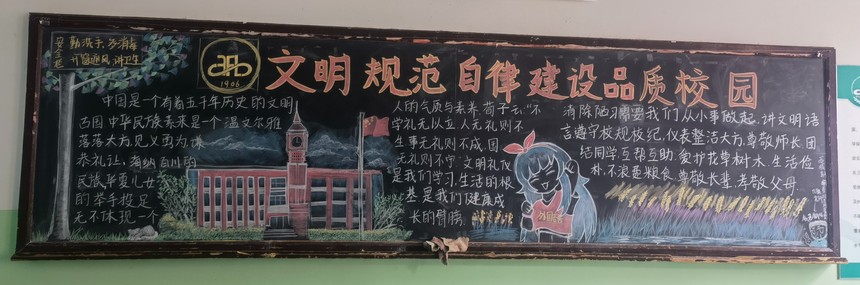 安全长
勤洗手, 多消毒
开窗通风 讲卫生
1906
文明 规范 自律 建设品质校园
中国是一个有着五千年历史的文明
古国 中华民族素来是一个温文尔雅
落落大方, 见义勇为, 谦
恭礼让, 海纳百川的
民族, 华夏儿女
的举手投足
无不体现一个
人的气质与素养. 荀子云:"不
学礼无以立, 人无礼则不
生, 事无礼则不成, 国
无礼则不宁" 文明礼仪
是我们学习, 生活的根
基, 是我们健康成
长的臂膀
消除陋习需要我们从小事做起. 讲文明语
言遵守校规校纪, 仪表整洁大方, 尊敬师长 团
结同学, 互帮互助, 爱护花草树木. 生活俭
朴, 不浪费粮食, 尊敬长辈. 孝敬父母.